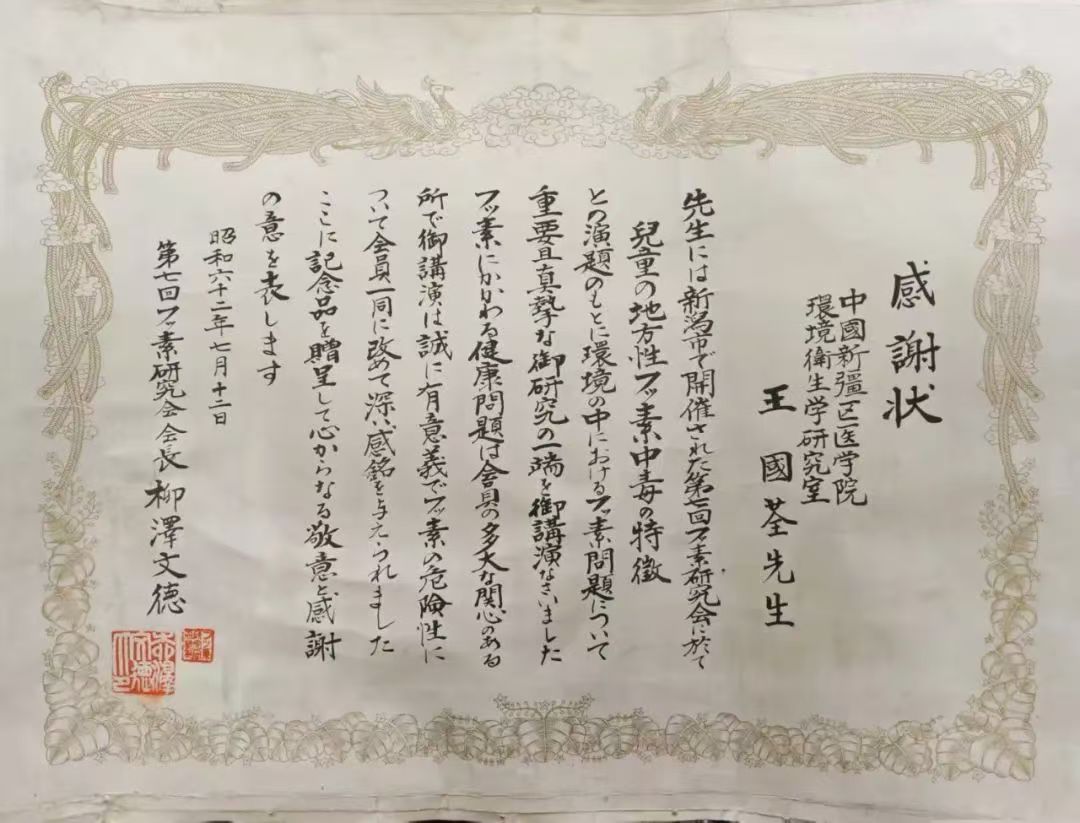 感謝状
中國新疆区医学院
環境衛生学研究室
王國荃先生
先生には新潟市で開催された第七回フッ素研究会に於て
兒童の地方性フッ素中毒の特徴
との演題のもとに環境の中におけるフッ素問題について
重要且真摯な御研究の一端を御講演なさいました
フッ素にかかわる健康問題は会員の多大な関心のある
所で御講演は誠に有意義でフッ素の危険性に
ついて会員一同に改めて深い感銘を与えられました
ここに記念品を贈呈して心からなる敬意と感謝
の意を表します
昭和六十二年七月十二日
第七回フッ素研究会会長 柳澤文德